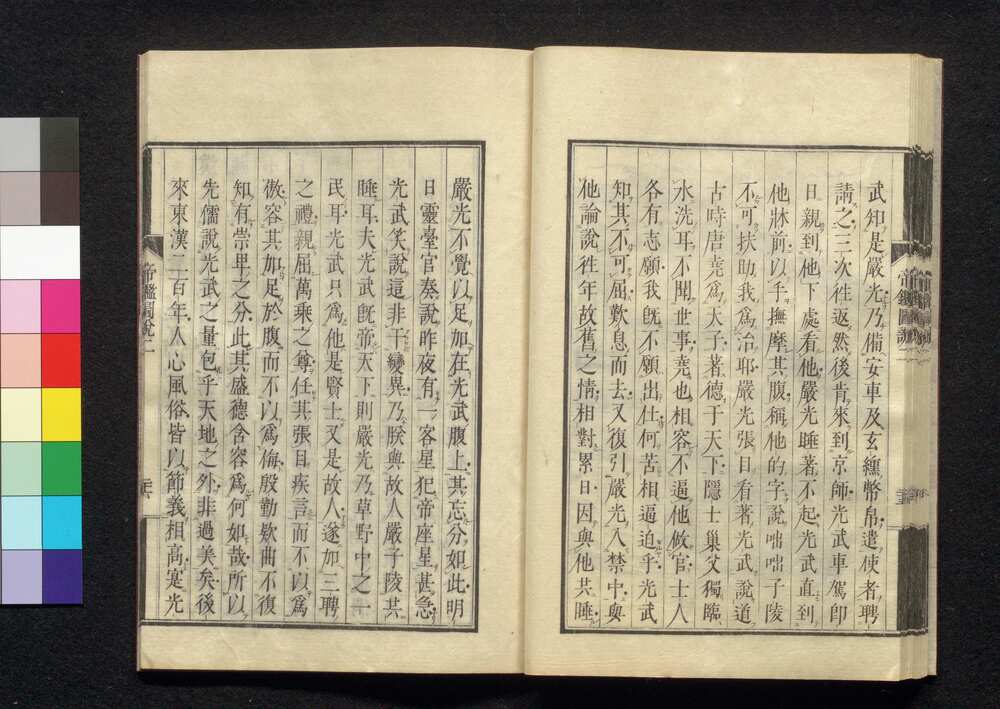 武知是嚴光乃備安車及玄纁幣帛遣使者聘
請之三次徃返然後肯來到京師光武車駕卽
日親到他下處看他嚴光睡著不起光武直到
他牀前以手撫摩其腹稱他的字說咄咄子陵
不可扶助我爲治耶嚴光張目看著光武說道
古時唐堯爲天子著德于天下隱士巢父獨臨
水洗耳不聞世事堯也相容不逼他做官士人
各有志願我旣不願出仕何苦相逼迫乎光武
知其不可屈歎息而去又復引嚴光入禁中與
他論說徃年故舊之情相對累日因與他共睡
嚴光不覺以足加在光武腹上其忘分如此明
日靈臺官奏說昨夜有一客星犯帝座星甚急
光武笑說這非干變異乃朕與故人嚴子陵共
睡耳夫光武旣帝天下則嚴光乃草野中之一
民耳光武只爲他是賢士又是故人遂加三聘
之禮親屈萬乘之尊任其張目疾言而不以爲
傲容其加足於腹而不以爲侮殷勤欵曲不復
知有崇卑之分此其盛德含容爲何如哉所以
先儒說光武之量包乎天地之外非過美矣後
來東漢二百年人心風俗皆以節義相高寔光
帝鑑圖說二